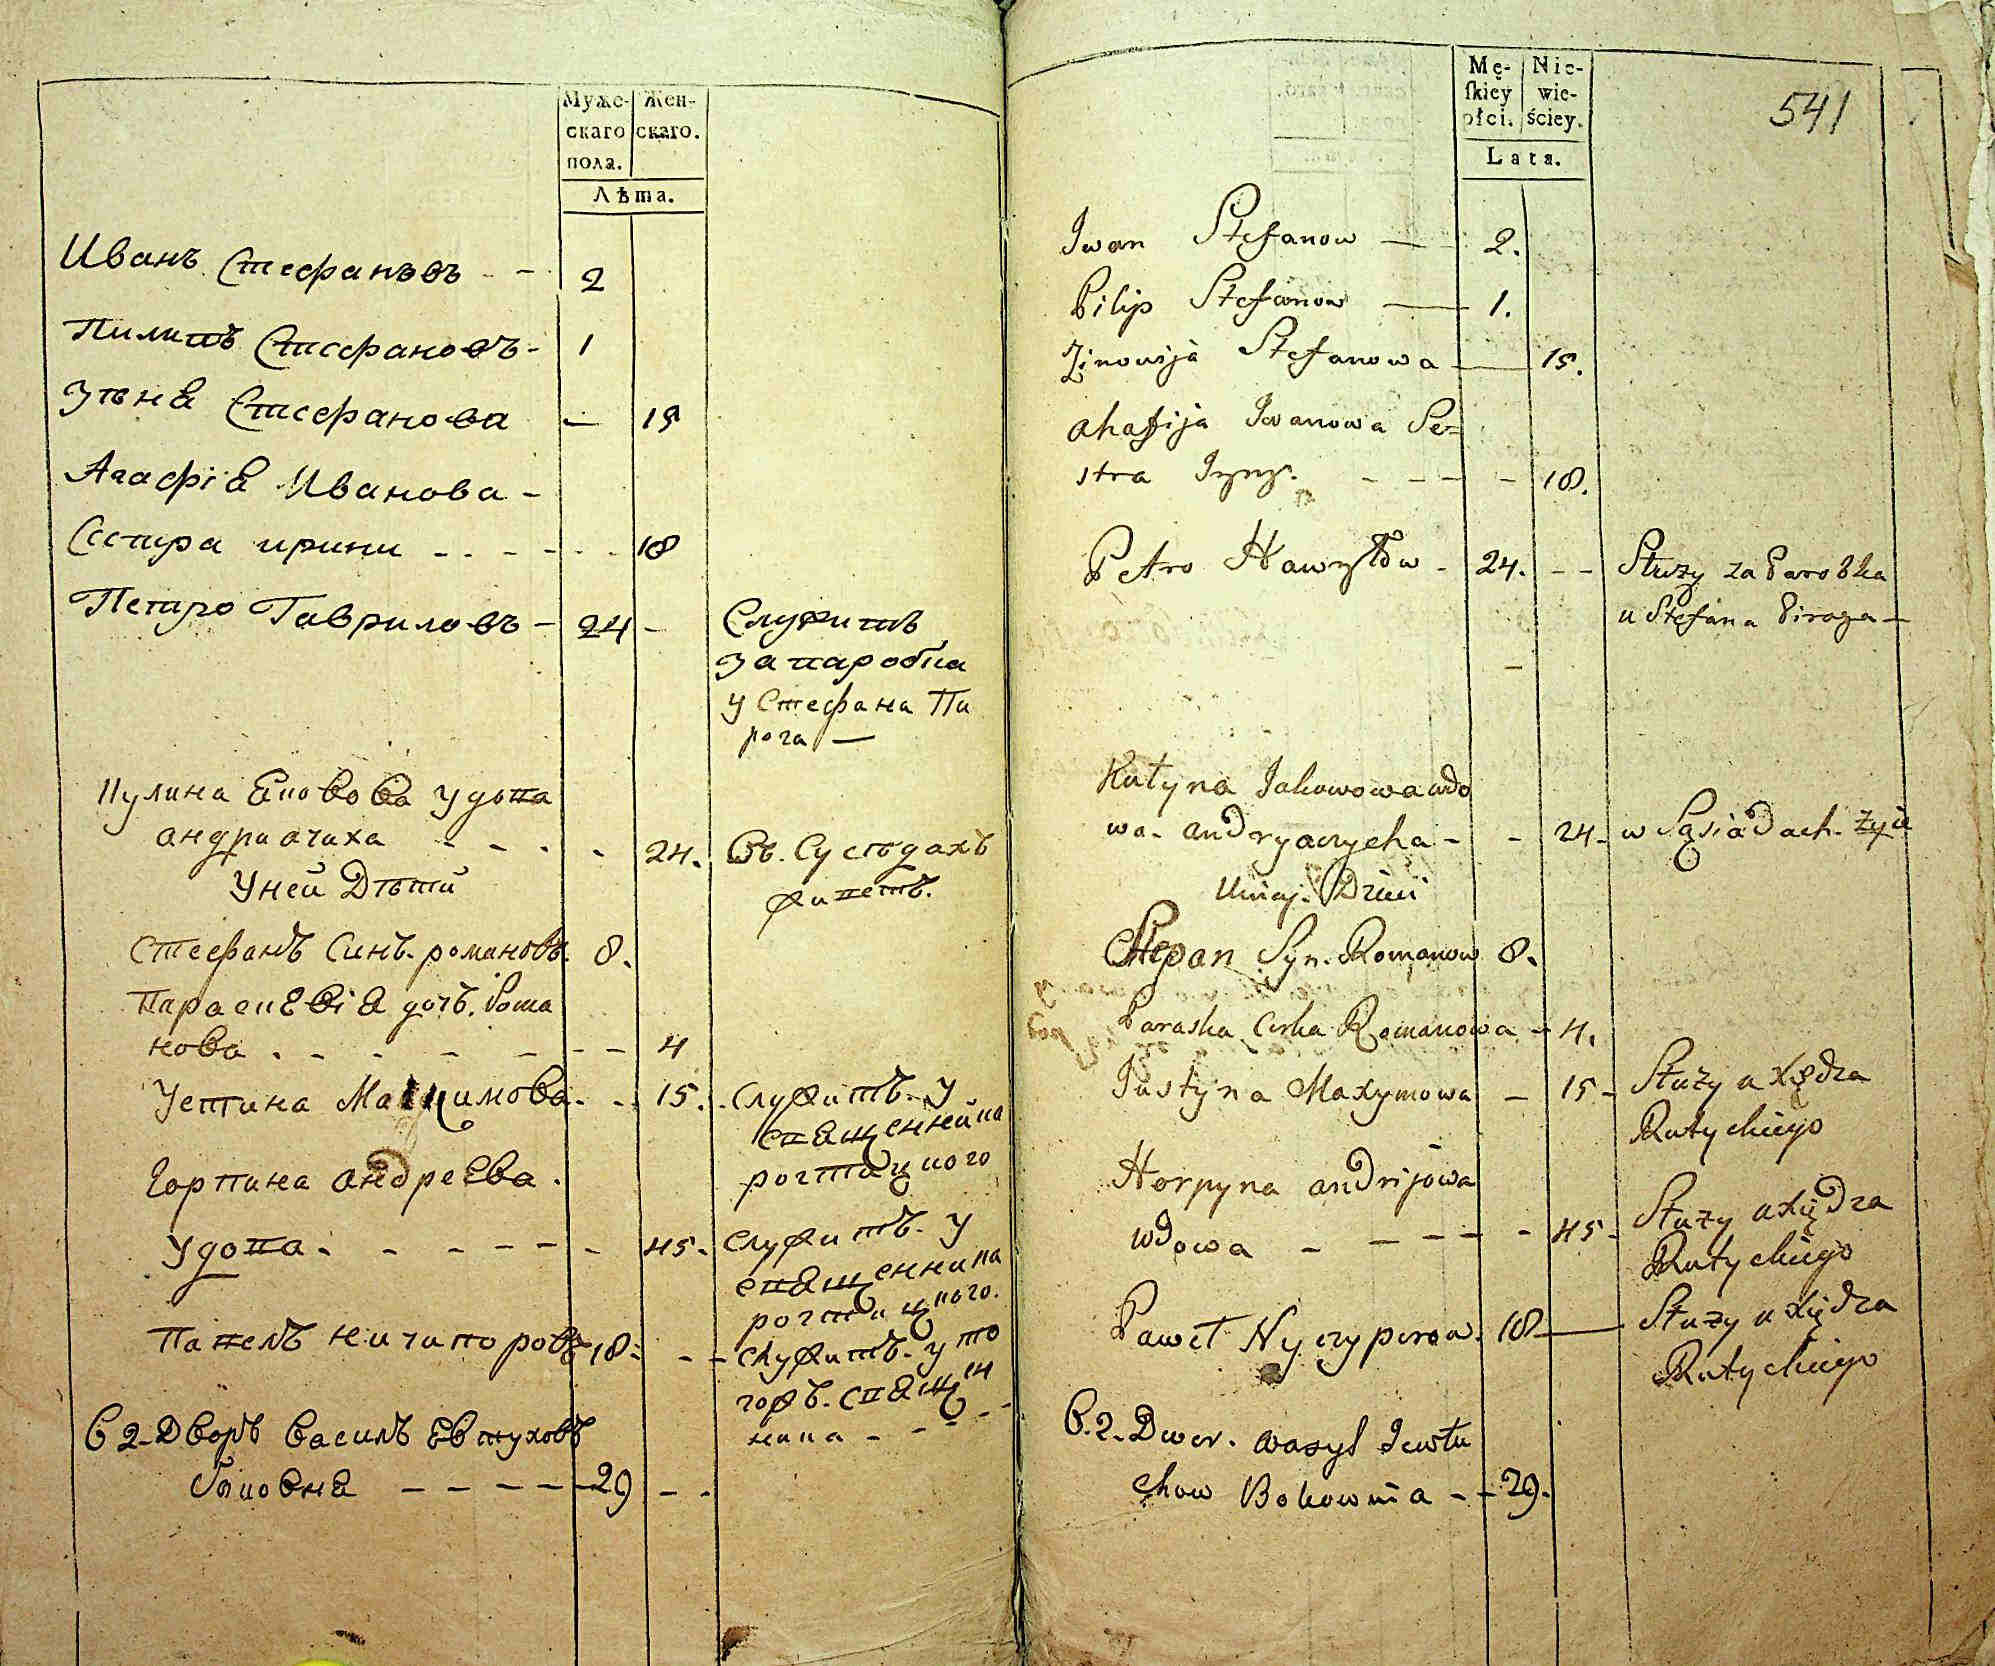 Муже- Жен-
скаго скаго.
пола.
Лѣта.
Иванъ Стефановъ - - 2
Пилипъ Стефановъ - 1
Стефанова — 15
Агафія Иванова -
Сестра ирини - - - - - - 18
Петро Гавриловъ - 24 - Служитъ
за паробка
у Стефана Пи
рога —
Яковова удова
андриячиха - - - - 24. Въ. Сусѣдахъ
живетъ.
Уней Дѣти
Стефанъ Синъ. романовъ. 8.
Параскевія дочь. Рома
нова . - - - - - - 4
Устина Максимова. - 15. Служитъ. у
священника
Горпина андреева .
удова. - - - - - - 45. служитъ. у
священника
Павелъ ничипоровъ 18. - - служитъ. у то
гожъ. священ
ника - - - -
В 2 - Дворъ василь Евтуховъ
- - - - - 29 - -
Mę- Nie-
ſkiey wie-
płci. ściey.
Lata.
541
Iwan Stefanow — 2.
Pilip Stefanow — 1.
Zinowija Stefanowa — 15.
ahafija Iwanowa Se=
stra - - - - 18.
Petro Hawryłow - 24. - - Służy za Parobka
u Stefana Piroga —
Jakowowa wdo
wa. andryaczycha - - 24 - w Sąsiadach. żyie
Uniey. Dzieci
Stepan Syn. Romanow 8.
Paraska Corka Romanowa - 4.
Justyna Maxymowa - 15 - Służy u Xiędza
Rutyckiego
Horpyna andrijowa
wdowa - - - - - 45 - Służy u Xiędza
Rutyckiego
Paweł Nyczyporow. 18 — Służy u Xiędza
Rutyckiego
В. 2. Dwor. wasyl Jewtu
chow Bokownia - - 29.